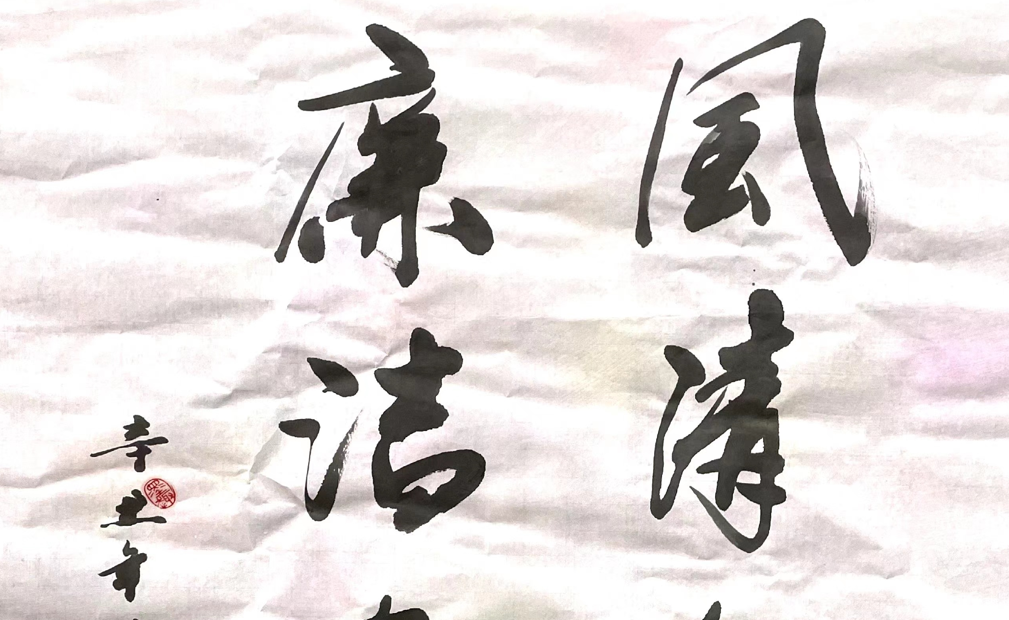 風清
廉洁
辛丑年